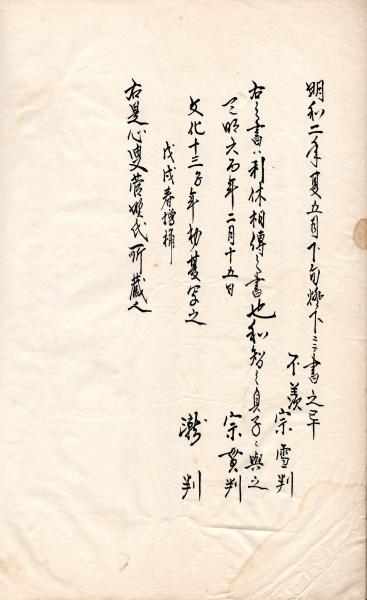 明和二年夏五月下旬燈下ニ書之早
不羨宗雪判
右之書ハ利休相傳之書也和智之貞子ニ與之
天明六丙年二月十五日
宗貫判
文化十三子年初夏写之
瀧 判
戊戌春増補
右是心更菅沼氏所蔵人